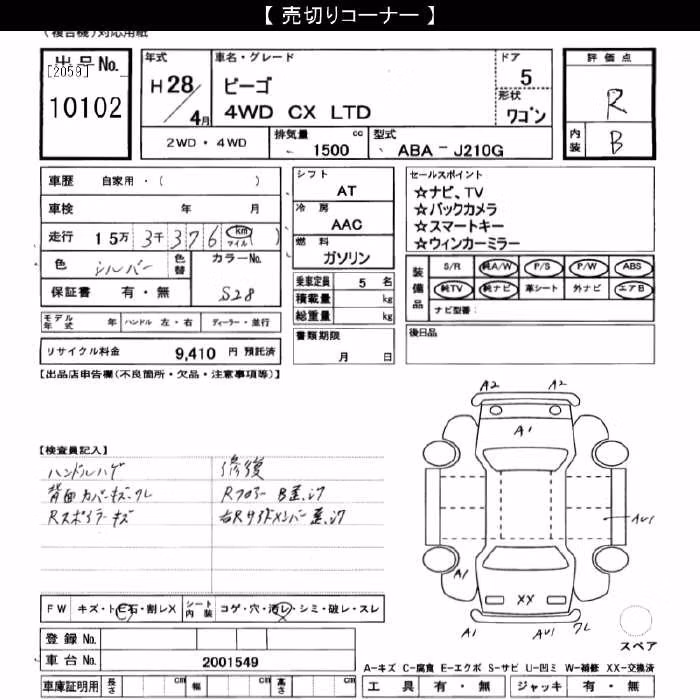 【 売切りコーナー 】
(複合機)対応用紙
出品No.
[2059]
10102
年式
H28/4月
車名・グレード
ビーゴ
4WD CX LTD
ドア
5
形状
ワゴン
評価点
R
内装
B
2WD・4WD
排気量
1500 cc
型式
ABA－J210G
車歴 自家用・( )
車検 年 月
走行 15万3千376 km マイル ( )
色 シルバー
色替
カラーNo.
S28
保証書 有・無
モデル年式 年 ハンドル 左・右 ディーラー・並行
リサイクル料金 9,410 円 預託済
シフト
AT
冷房
AAC
燃料
ガソリン
乗車定員 5 名
積載量 kg
総重量 kg
書類期限
月 日
セールスポイント
☆ナビ、TV
☆バックカメラ
☆スマートキー
☆ウィンカーミラー
装備品
S/R 純A/W P/S P/W ABS
純TV 純ナビ 革シート 外ナビ エアB
ナビ型番:
後日品
【出品店申告欄(不良箇所・欠品・注意事項等)】
【検査員記入】
ハンドルハゲ
背面カバーキズ、ワレ
Rスポイラーキズ
修復
Rフロアー B歪、汚
右Rサイドメンバー歪、汚
A2 A2
A1
AU1
A1
XX
A1 AU1 ワレ
スペア
FW キズ・トビ石・割レX
シート内装 コゲ・穴・汚レ・シミ・破レ・スレ
登録No.
車台No. 2001549
車庫証明用 長さ cm 幅 cm 高さ cm
A-キズ C-腐食 E-エクボ S-サビ U-凹ミ W-補修 XX-交換済
工具 有・無 ジャッキ 有・無